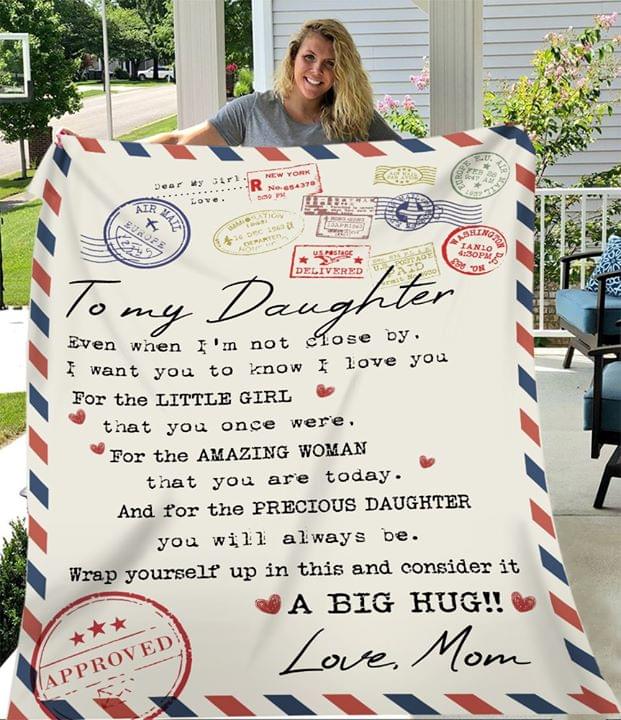 Dear My Girl,
Love.
NEW YORK
R No.654378
AIR MAIL
EUROPE
IMMIGRATION
16 DEC 1963
DEPARTED
U.S POSTAGE
DELIVERED
U.S. POSTAGE
PAID
EUROPE E.U. AIR MAIL
FEB 28
WASHINGTON D.C.
JAN10
4:30PM
To my Daughter
Even when I'm not close by.
I want you to know I love you
For the LITTLE GIRL
that you once were.
For the AMAZING WOMAN
that you are today.
And for the PRECIOUS DAUGHTER
you will always be.
Wrap yourself up in this and consider it
A BIG HUG!!
Love, Mom
APPROVED